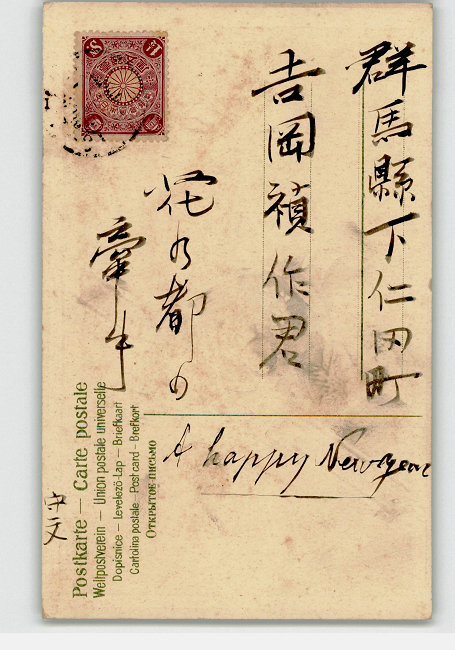 群馬縣下仁田町
吉岡禎作君
花の都の
牽牛
A happy New year
Postkarte – Carte postale
Weltpostverein – Union postale universelle
Dopisnice – Levelező-Lap – Briefkaart
Cartolina postale – Post card – Brefkort
Открытое письмо